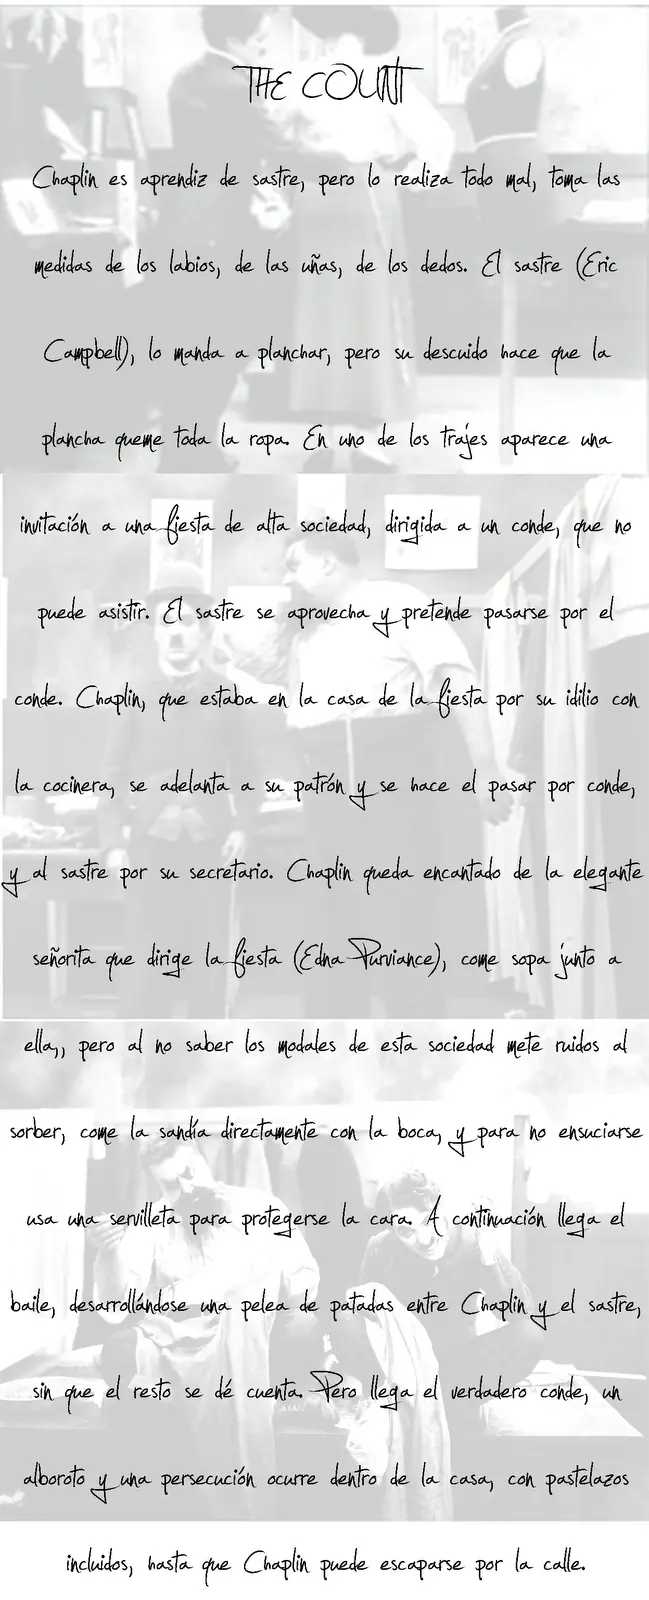 THE COUNT
Chaplin es aprendiz de sastre, pero lo realiza todo mal, toma las
medidas de los labios, de las uñas, de los dedos. El sastre (Eric
Campbell), lo manda a planchar, pero su descuido hace que la
plancha queme toda la ropa. En uno de los trajes aparece una
invitación a una fiesta de alta sociedad, dirigida a un conde, que no
puede asistir. El sastre se aprovecha y pretende pasarse por el
conde. Chaplin, que estaba en la casa de la fiesta por su idilio con
la cocinera, se adelanta a su patrón y se hace el pasar por conde,
y al sastre por su secretario. Chaplin queda encantado de la elegante
señorita que dirige la fiesta (Edna Purviance), come sopa junto a
ella,, pero al no saber los modales de esta sociedad mete ruidos al
sorber, come la sandía directamente con la boca, y para no ensuciarse
usa una servilleta para protegerse la cara. A continuación llega el
baile, desarrollándose una pelea de patadas entre Chaplin y el sastre,
sin que el resto se dé cuenta. Pero llega el verdadero conde, un
alboroto y una persecución ocurre dentro de la casa, con pastelazos
incluidos, hasta que Chaplin puede escaparse por la calle.